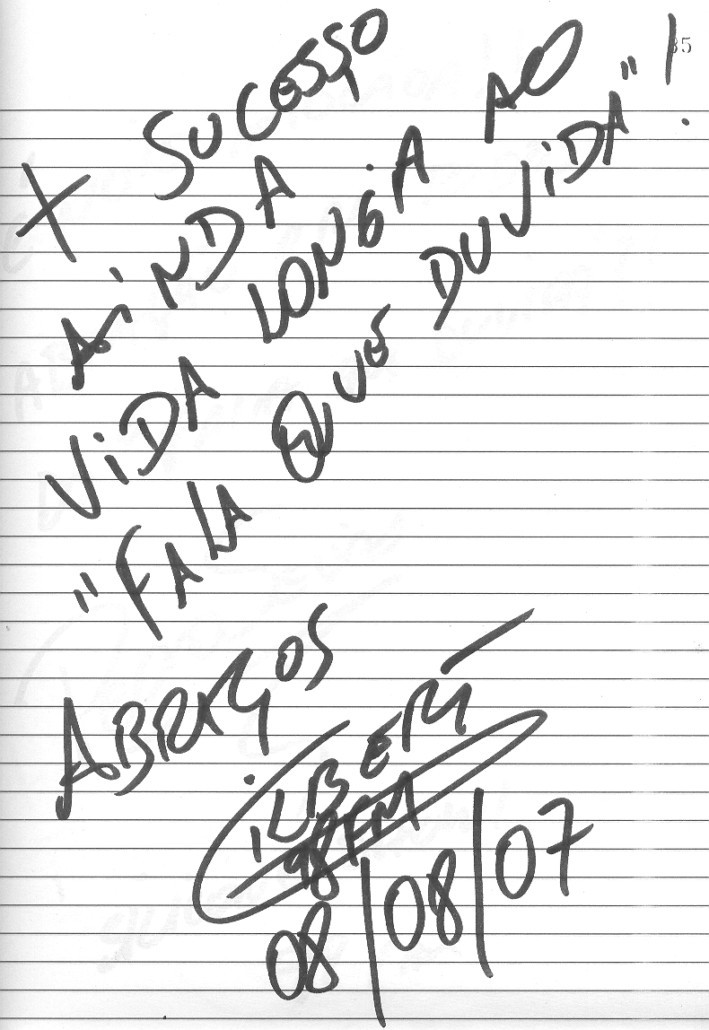 35
+ SUCESSO
AINDA
VIDA LONGA AO
"FALA QUE DUVIDA"!
ABRAÇOS
GILBERT
98FM
08/08/07